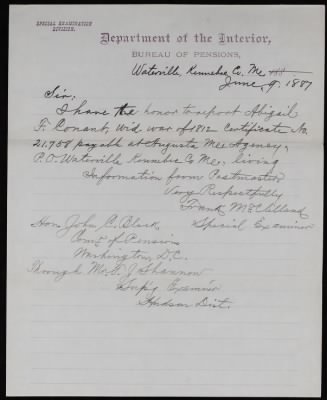 SPECIAL EXAMINATION
DIVISION.
Department of the Interior,
BUREAU OF PENSIONS,
Waterville, Kennebec Co. Me
June, 9, 1887
Sir:
I have the honor to report Abigail
F. Conant, Wid. war of 1812 Certificate No.
21,758 payable at Augusta Me. Agency,
P.O. Waterville Kennebec Co Me, living
Information from Postmaster
Very Respectfully
Frank McClelland
Special Examiner
Hon John C. Black
Comr. of Pensions
Washington, D.C.
Through Mr. J Shannon
Sup'g Examiner
Hudson Dist.